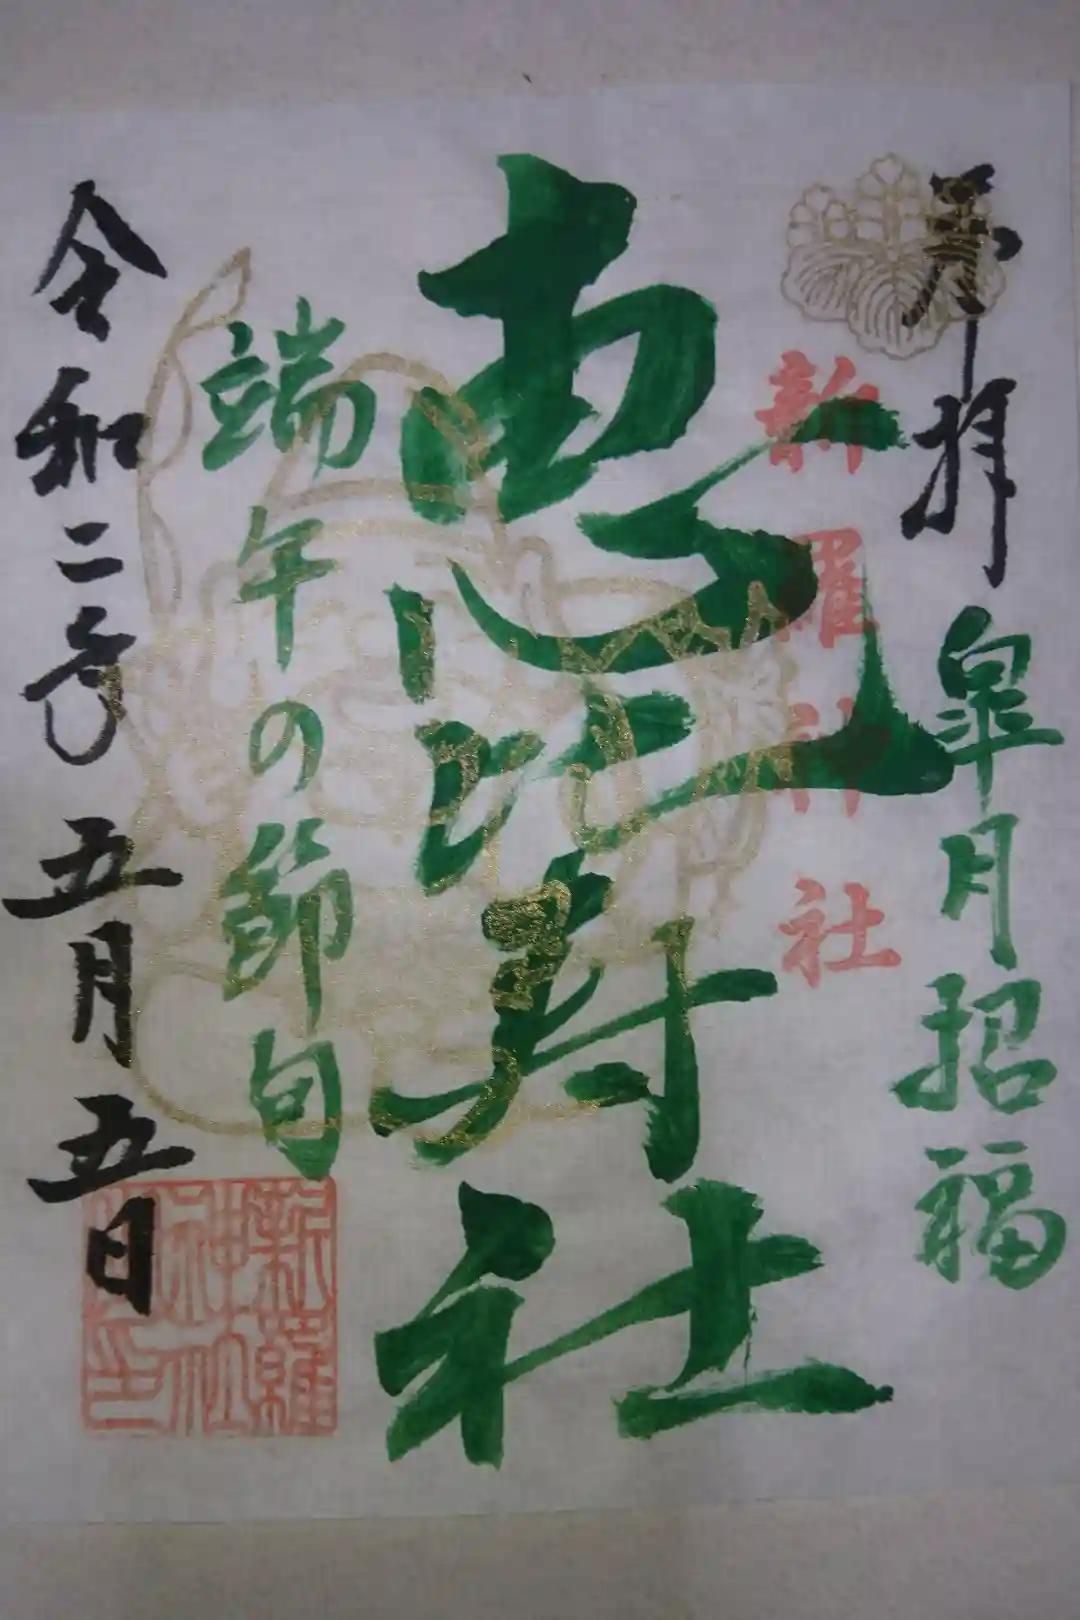 奉拝
皐月招福
新羅神社
恵比寿社
端午の節句
令和二年
五月五日
新羅神社之印